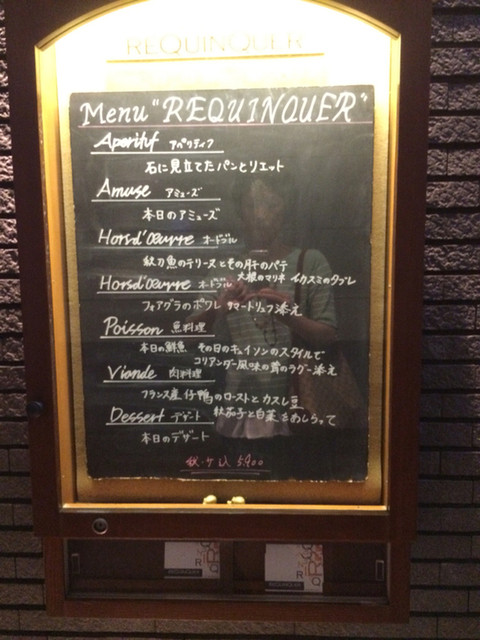 REQUINQUER
Menu "REQUINQUER"
Aperitif アペリティフ
石に見立てたパンとリエット
Amuse アミューズ
本日のアミューズ
Horsd'Œuvre オードブル
秋刀魚のテリーヌとその肝のパテ
大根のマリネ イカスミのタプレ
Horsd'Œuvre オードブル
フォアグラのポワレ サマートリュフ添え
Poisson 魚料理
本日の鮮魚 その日のキュイソンのスタイルで
コリアンダー風味の茸のラグー添え
Viande 肉料理
フランス産仔鴨のローストとカスレ豆
秋茄子と白菜をあしらって
Dessert デザート
本日のデザート
税・サ込 5,900
REQUINQUER
REQUINQUER